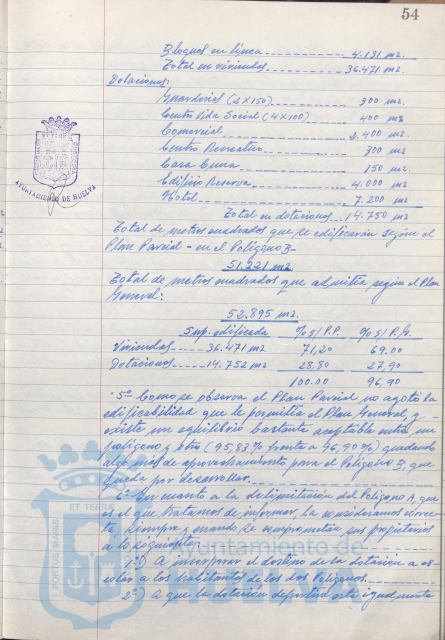 54
Bloques en línea 4.131 m2.
Total en viviendas 36.471 m2.
Dotaciones:
Guarderias (2x150) 300 m2
Centro Vida Social (4x100) 400 m2
Comercial 2.400 m2.
Centro Recreativo 300 m2
Casa Cuna 150 m2.
Edificio Reserva 4.000 m2
Hotel 7.200 m2
Total en dotaciones 14.750 m2
Total de metros cuadrados que se edificarán según el
Plan Parcial - en el Polígono B -
51.221 m2
Total de metros cuadrados que admitia según el Plan
General:
52.895 m2.
Sup. edificada %s/P.P. %s/P.G.
Viviendas 36.471 m2 71,20 69.00
Dotaciones 14.752 m2 28,80 27,90
100.00 96,90
5º Como se observa el Plan Parcial no agotó la
edificabilidad que le permitia el Plan General, y
existe un equilibrio bastante aceptable entre un
polígono y otro (95,83% frente a 96,90%) quedando
algo más de aprovechamiento para el Polígono B, que
queda por desarrollar.
6º En cuanto a la delimitación del Polígono A, que
es el que tratamos de informar, la consideramos correc-
ta, siempre y cuando se comprometan sus propietarios
a lo siguiente:
1º) A incorporar el destino de la dotación a es-
colar a los habitantes de los dos Polígonos.
2º) A que la dotación deportiva esté igualmente
AYUNTAMIENTO DE HUELVA
PORTUS MARIS ET TERRE
Ayuntamiento de